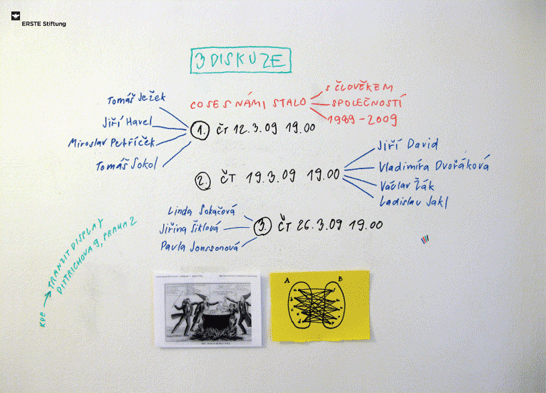 ERSTE Stiftung
3 DISKUZE
CO SE S NÁMI STALO
S ČLOVĚKEM
SPOLEČNOSTÍ
1989-2009
Tomáš Ježek
Jiří Havel
Miroslav Petříček
Tomáš Sokol
1. ČT 12.3.09 19.00
2. ČT 19.3.09 19.00
Jiří David
Vladimíra Dvořáková
Václav Žák
Ladislav Jakl
Linda Sokačová
Jiřina Šiklová
Pavla Jonssonová
3. ČT 26.3.09 19.00
KDE → TRANZITDISPLAY
DITTRICHOVA 9, PRAHA 2
A B